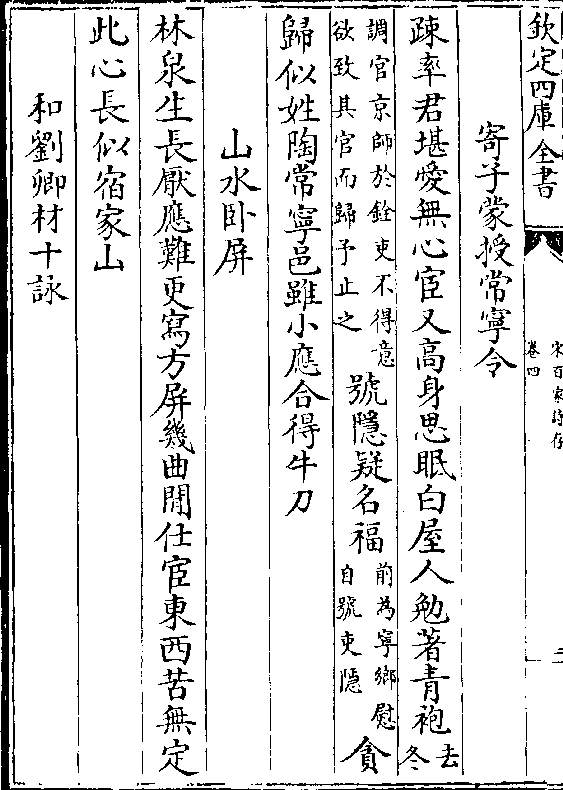 欽定四庫全書
宋百家詩存
卷四
寄子蒙授常寧令
疎率君堪愛無心宦又高身思眠白屋人勉著青袍去冬
調官京師於銓吏不得意欲致其官而歸予止之號隱疑名福前為寧鄉慰自號吏隱貪
歸似姓陶常寧邑雖小應合得牛刀
山水卧屏
林泉生長厭應難更寫方屏幾曲閒仕宦東西苦無定
此心長似宿家山
和劉卿材十詠